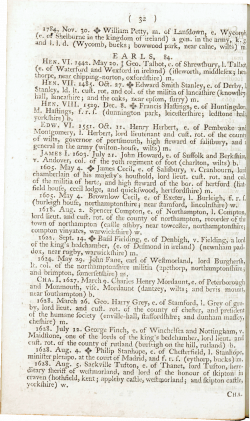 ( 32 )
1784. Nov. 30. ✠ William Petty, m. of Lansdown, e. Wycomb
(e. of Shelburne in the kingdom of ireland) a gen. in the army, k. g.
and l. l. d. (Wycomb, bucks; bowwood park, near calne, wilts) m.
EARLS, 84.
HEN. VI. 1442. May 20. J Geo. Talbot, e. of Shrewsbury, l. Talbot
(e. of Waterford and Wexford in ireland) (isleworth, middlesex;
thorpe, near chipping-norton, oxfordshire) m.
HEN. VII. 1485. Oct. 27. Edward Smith Stanley, e. of Derby, l.
Stanley, ld. lt. cust. rot. and col. of the militia of lancashire (
hall, lancashire; and the oaks, near epsom, surry) m.
HEN. VIII. 1529. Dec. 8. Francis Hastings, e. of Huntingdon
M. Hastings, f. r. s. (dunnington park, leicestershire; ledstone
yorkshire) w.
EDW. VI. 1551. Oct. 11. Henry Herbert, e. of Pembroke and
Montgomery, l. Herbert, lord lieutenant and cust. rot. of the county
of wilts, governor of portsmouth, high steward of salisbury, and
general in the army (wilton-house, wilts) m.
JAMES I. 1603. July 21. John Howard, e. of Suffolk & Berkshire
v. Andover, col. of the 70th regiment of foot (charlton, wilts) b.
1605. May 4. James Cecil, e. of Salisbury, v. Cranbourn, lord
chamberlain of his majesty's houshold, lord lieut. cust. rot. and col.
of the militia of herts, and high steward of the bor. of hertford (hat-
field house, cecil lodge, and quickswood, hertfordshire) m.
1605. May 4. Brownlow Cecil, e. of Exeter, l. Burleigh, f. r. s.
(burleigh house, northamptonshire; near stamford, lincolnshire) w.
1618. Aug. 2. Spencer Compton, e. of Northampton, l. Compton,
lord lieut. and cust. rot. of the county of northampton, recorder of the
town of northampton (castle ashby, near towcester, northamptonshire;
compton vinyates, warwickshire) m.
1622. Sept. 14. ✠ Basil Fielding, e. of Denbigh, v. Fielding, a lord
of the king's bedchamber, (e. of Desmond in ireland) (newnham pad-
dox, near rugby, warwickshire) m.
1624. May 29. John Fane, earl of Westmorland, lord Burghersh,
lt. col. of the northamptonshire militia (apethorp, northamptonshire;
and brimpton, somersetshire) m.
CHA. I. 1627. March 9. Charles Henry Mordaunt, e. of Peterborough
and Monmouth, visc. Mordaunt (dantzey, wilts; and bevis mount,
near southampton) b.
1628. March 26. Geo. Harry Grey, e. of Stamford, l. Grey of gro-
by, lord lieut. and cust. rot. of the county of chester, and president
of the humane society (enville-hall, staffordshire; and dunham massey,
cheshire) m.
1628. July 12. George Finch, e. of Winchelsea and Nottingham, v.
Maidstone, one of the lords of the king's bedchamber, lord lieut. and
cust. rot. of the county of rutland (burleigh on the hill, rutland) b.
1628. Aug. 4. ✠ Philip Stanhope, e. of Chesterfield, l. Stanhope,
minister plenipo. at the court of Madrid, and f. r. s. (eythorp, bucks) m.
1628. Aug. 5. Sackville Tufton, e. of Thanet, lord Tufton, here-
ditary sheriff of westmorland, and lord of the honour of skipton in
craven (hothfield, kent; appleby castle, westmorland; and skipton castle,
yorkshire) w.
CHA.